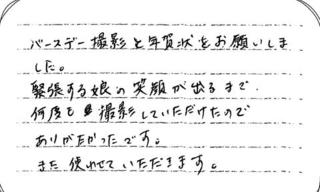 バースデー撮影と年賀状をお願いしま
した。
緊張する娘の笑顔が出るまで
何度も撮影していただけたので
ありがたかったです。
また使わせていただきます。